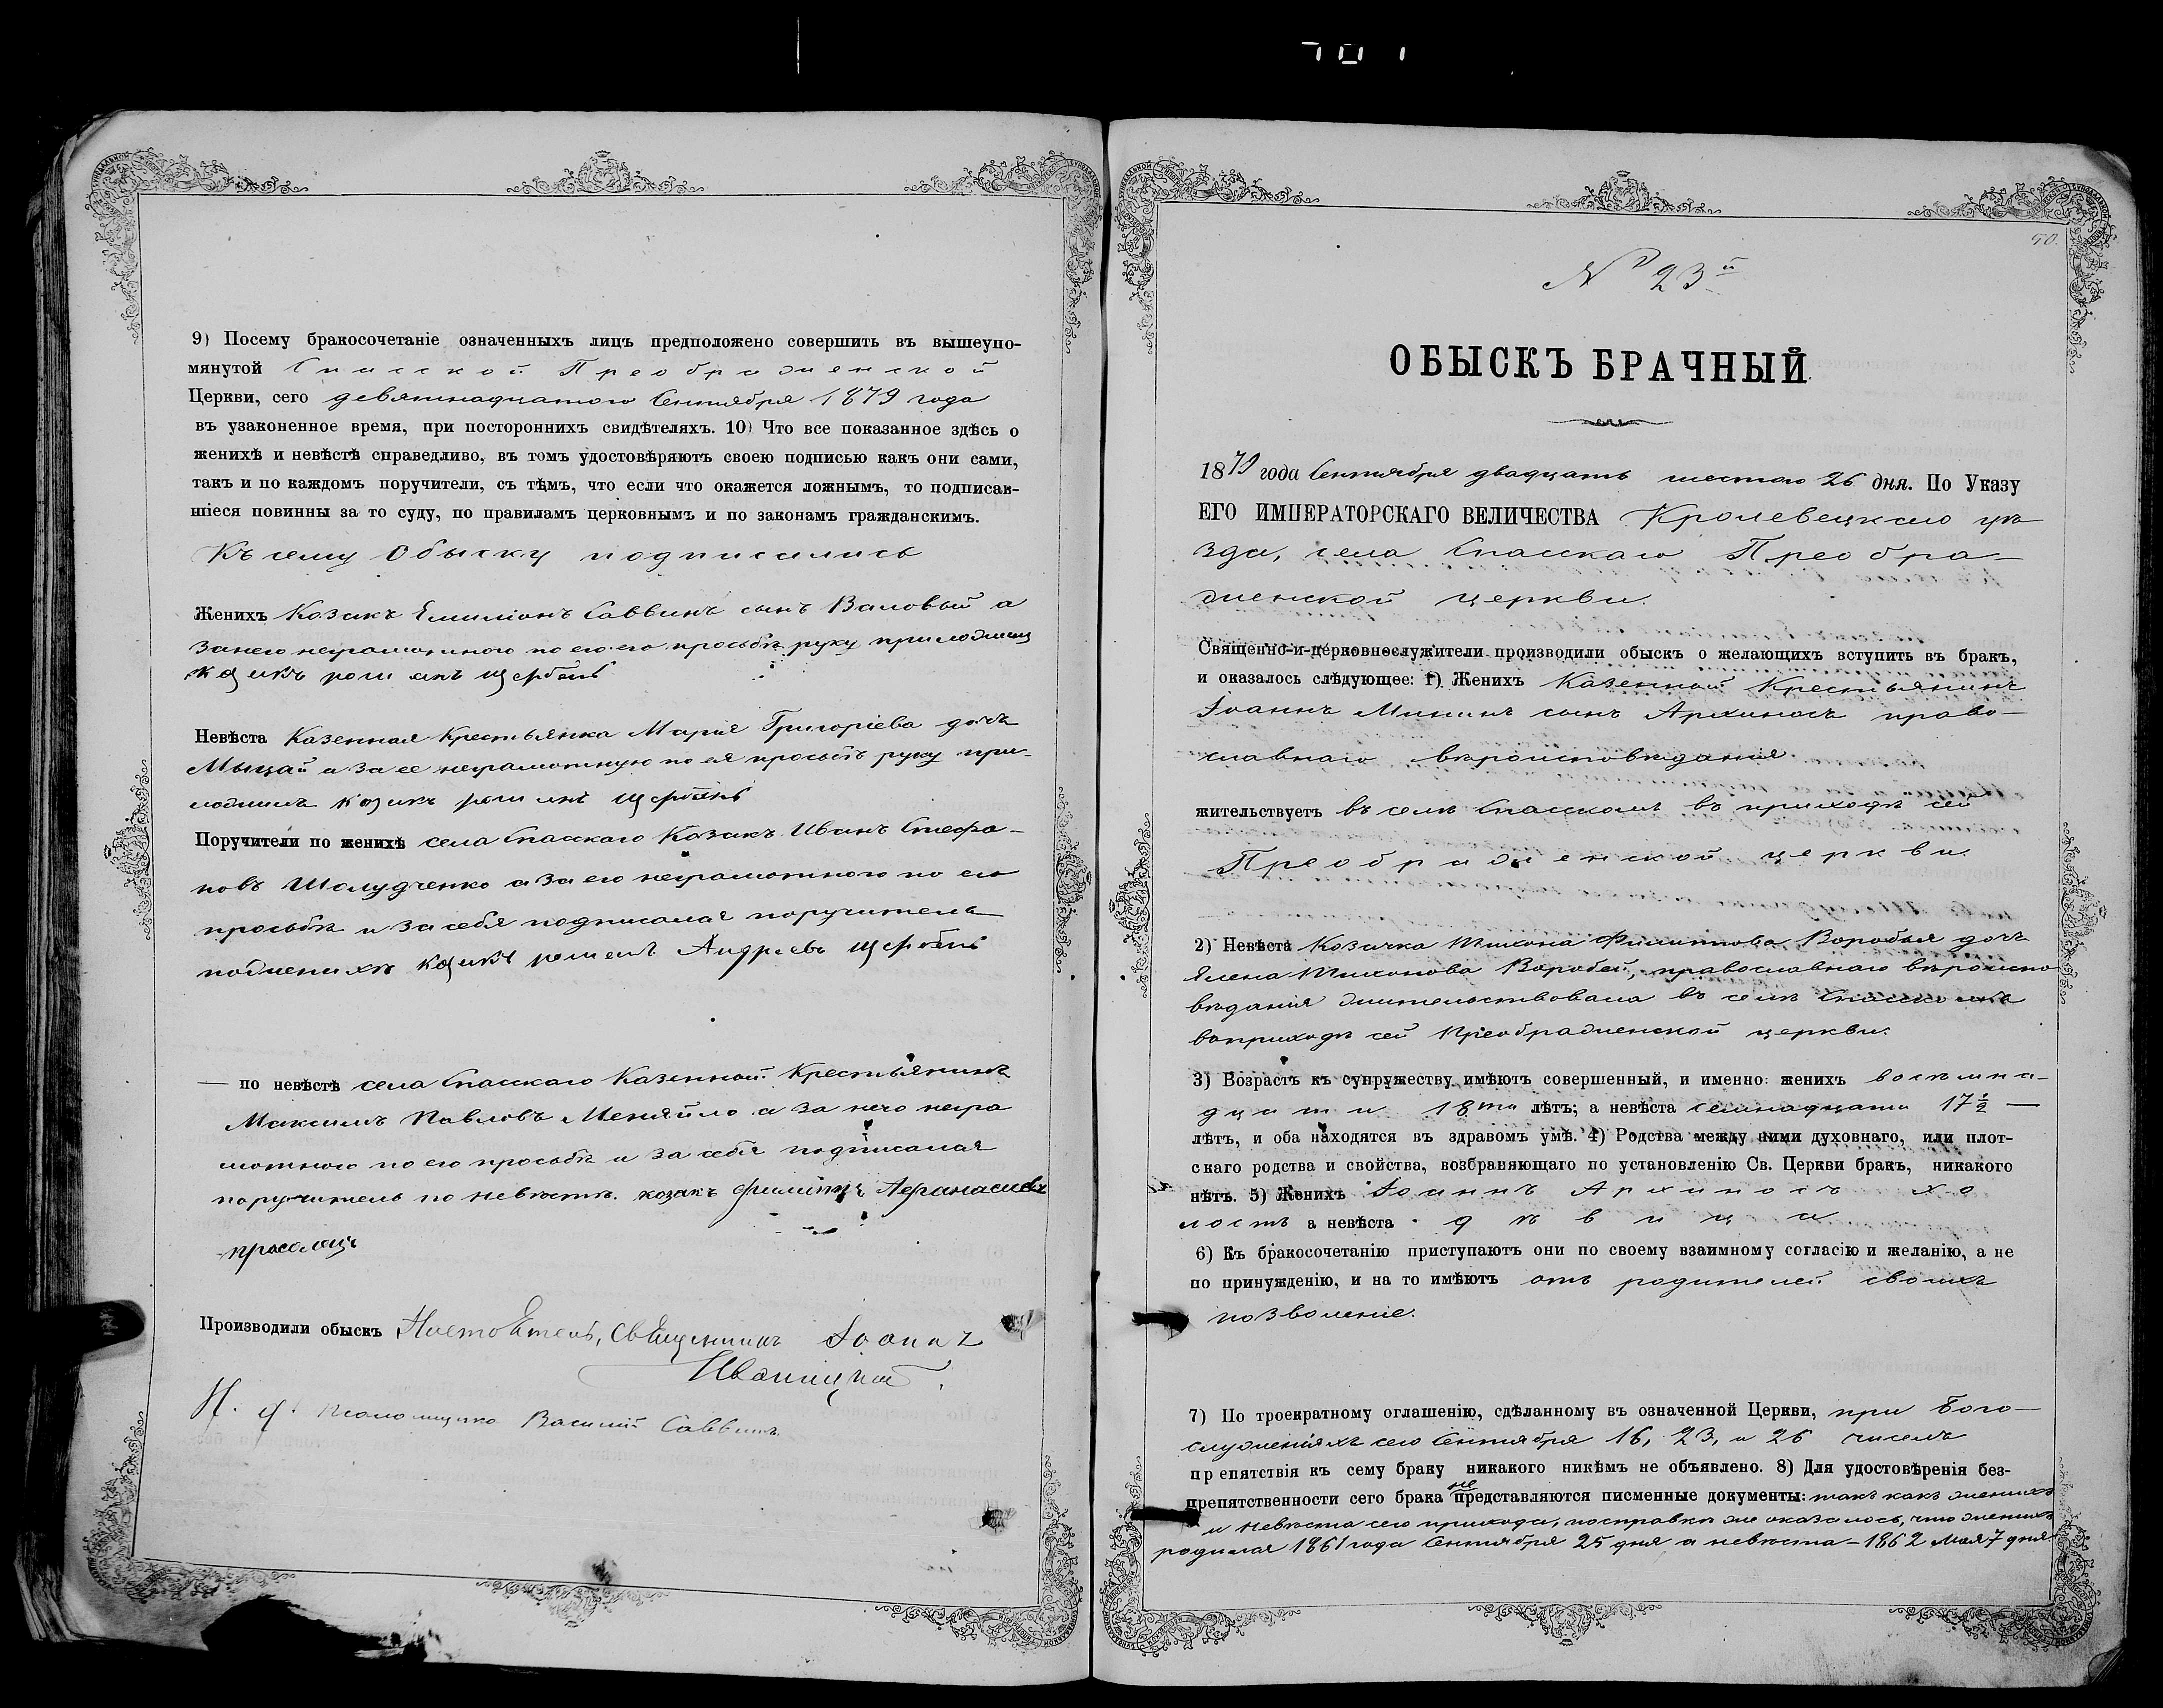 9) Посему бракосочетаніе означенныхъ лицъ предположено совершить въ вышеупо-
мянутой Спасской Преображенской
Церкви, сего девятнадцатого Сентября 1879 года
въ узаконенное время, при постороннихъ свидѣтеляхъ. 10) Что все показанное здѣсь о
женихѣ и невѣстѣ справедливо, въ томъ удостовѣряютъ своею подписью какъ они сами,
такъ и по каждомъ поручители, съ тѣмъ, что если что окажется ложнымъ, то подписав-
шіеся повинны за то суду, по правиламъ церковнымъ и по законамъ гражданскимъ.
Къ сему Обыску подписались
Женихъ Козакъ Емиліонъ Саввинъ сынъ Валовый а
за него неграмотного по его просьбѣ руку приложилъ
козакъ
Невѣста Казенная Крестьянка Марія Григоріева дочь
Мыцай а за ее неграмотную по ея просьбѣ руку при-
ложилъ козакъ
Поручители по женихѣ села Спасскаго Козакъ Иванъ Стефа-
новъ Шолудченко а за его неграмотного по его
просьбѣ и за себя подписался поручитель
по женихѣ козакъ Андреевъ
— по невѣстѣ села Спасскаго Казенный Крестьянинъ
Максимъ Павловъ Меняйло а за него негра
мотного по его просьбѣ и за себя подписался
поручитель по невѣстѣ козакъ Филиппъ Афанасиевъ
Производили обыскъ Настоятель, Священникъ Іоаннъ
И. д. Василій Саввинъ
50.
№ 23й
ОБЫСКЪ БРАЧНЫЙ.
1879 года Сентября двадцать шестого 26 дня. По Указу
ЕГО ИМПЕРАТОРСКАГО ВЕЛИЧЕСТВА Кролевецкаго уѣ
зда, села Спасскаго Преобра-
женской церкви.
Священно-и-церковнослужители производили обыскъ о желающихъ вступить въ бракъ,
и оказалось слѣдующее: 1) Женихъ Казенный Крестьянинъ
Іоаннъ Мининъ сынъ Архипосъ право-
славнаго вѣроисповѣданія
жительствуетъ въ селѣ Спасскомъ въ приходѣ сей
Преображенской церкви.
2) Невѣста Козачка Тихона Филиппова Воробья дочь
Елена Тихонова Воробей, православнаго вѣроиспо
вѣданія жительствовала въ селѣ Спасскомъ
въ приходѣ сей Преображенской церкви.
3) Возрастъ къ супружеству имѣютъ совершенный, и именно: женихъ восемна-
дцати 18ти лѣтъ; а невѣста семнадцати 17½ —
лѣтъ, и оба находятся въ здравомъ умѣ. 4) Родства между ними духовнаго, или плот-
скаго родства и свойства, возбраняющаго по установленію Св. Церкви бракъ, никакого
нѣтъ. 5) Женихъ Іоаннъ Архипосъ хо
лостъ а невѣста дѣвица.
6) Къ бракосочетанію приступаютъ они по своему взаимному согласію и желанію, а не
по принужденію, и на то имѣютъ отъ родителей своихъ
позволеніе.
7) По троекратному оглашенію, сдѣланному въ означенной Церкви, при Бого-
служеніяхъ сего Сентября 16, 23, и 26 чиселъ
препятствія къ сему браку никакого никѣмъ не объявлено. 8) Для удостовѣренія без-
препятственности сего брака не представляются писменные документы: такъ какъ женихъ
и невѣста сего прихода, по справкѣ же оказалось, что женихъ
родился 1861 года Сентября 25 дня а невѣста — 1862 Мая 7 дня.